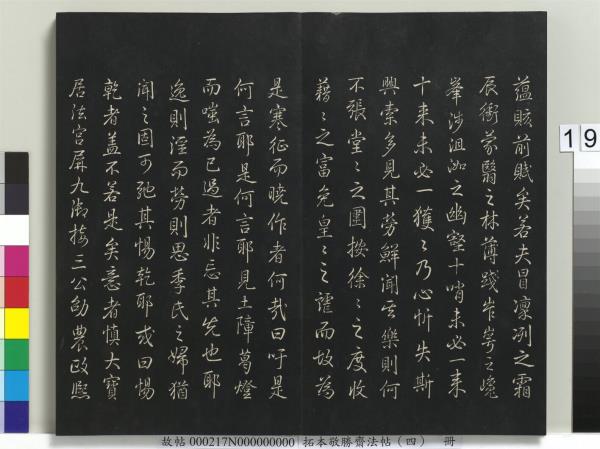 蘊眩前賦矣若夫冒凜冽之霜
辰衝蒙翳之林薄踐岝崿之巉
峯涉沮洳之幽壑十哨未必一來
十來未必一獲獲乃心忻失斯
興索多見其勞鮮聞其樂則何
不張堂堂之圍按徐徐之度收
藉藉之富免皇皇之護而故為
是寒征而曉作者何哉曰吁是
何言耶是何言耶見土障葛燈
而嗤為已過者非忘其先也耶
逸則淫而勞則思季氏之婦猶
聞之固可弛其惕乾耶或曰惕
乾者蓋不若是矣意者慎大寶
居法宮屏九御接三公劭農政熙
19
故帖 000217N000000000 拓本敬勝齋法帖(四) 冊